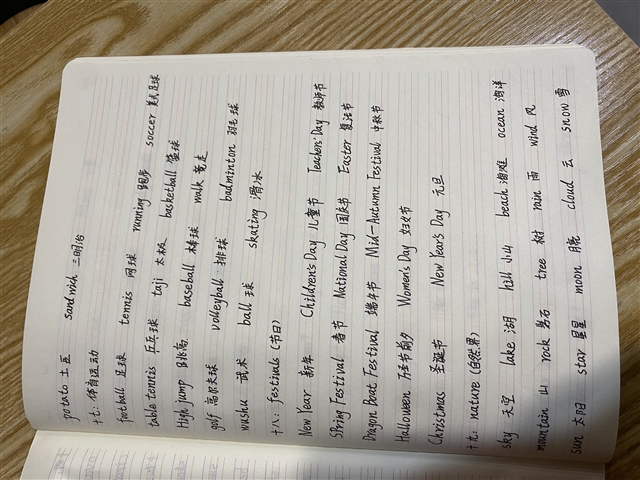 potato 土豆 sandwich 三明治
十七:体育运动
football 足球 tennis 网球 running 跑步 soccer 美式足球
table tennis 乒乓球 taiji 太极 basketball 篮球
High jump 跳高 baseball 棒球 walk 竞走
golf 高尔夫球 volleyball 排球 badminton 羽毛球
wushu 武术 ball 球 skating 滑冰
十八:festivals (节日)
New Year 新年 Children's Day 儿童节 Teachers' Day 教师节
Spring Festival 春节 National Day 国庆节 Easter 复活节
Dragon Boat Festival 端午节 Mid-Autumn Festival 中秋节
Halloween 万圣节前夕 Women's Day 妇女节
Christmas 圣诞节 New Year's Day 元旦
十九:nature (自然界)
sky 天空 lake 湖 hill 小山 beach 海滩 ocean 海洋
mountain 山 rock 岩石 tree 树 rain 雨 wind 风
sun 太阳 star 星星 moon 月亮 cloud 云 snow 雪